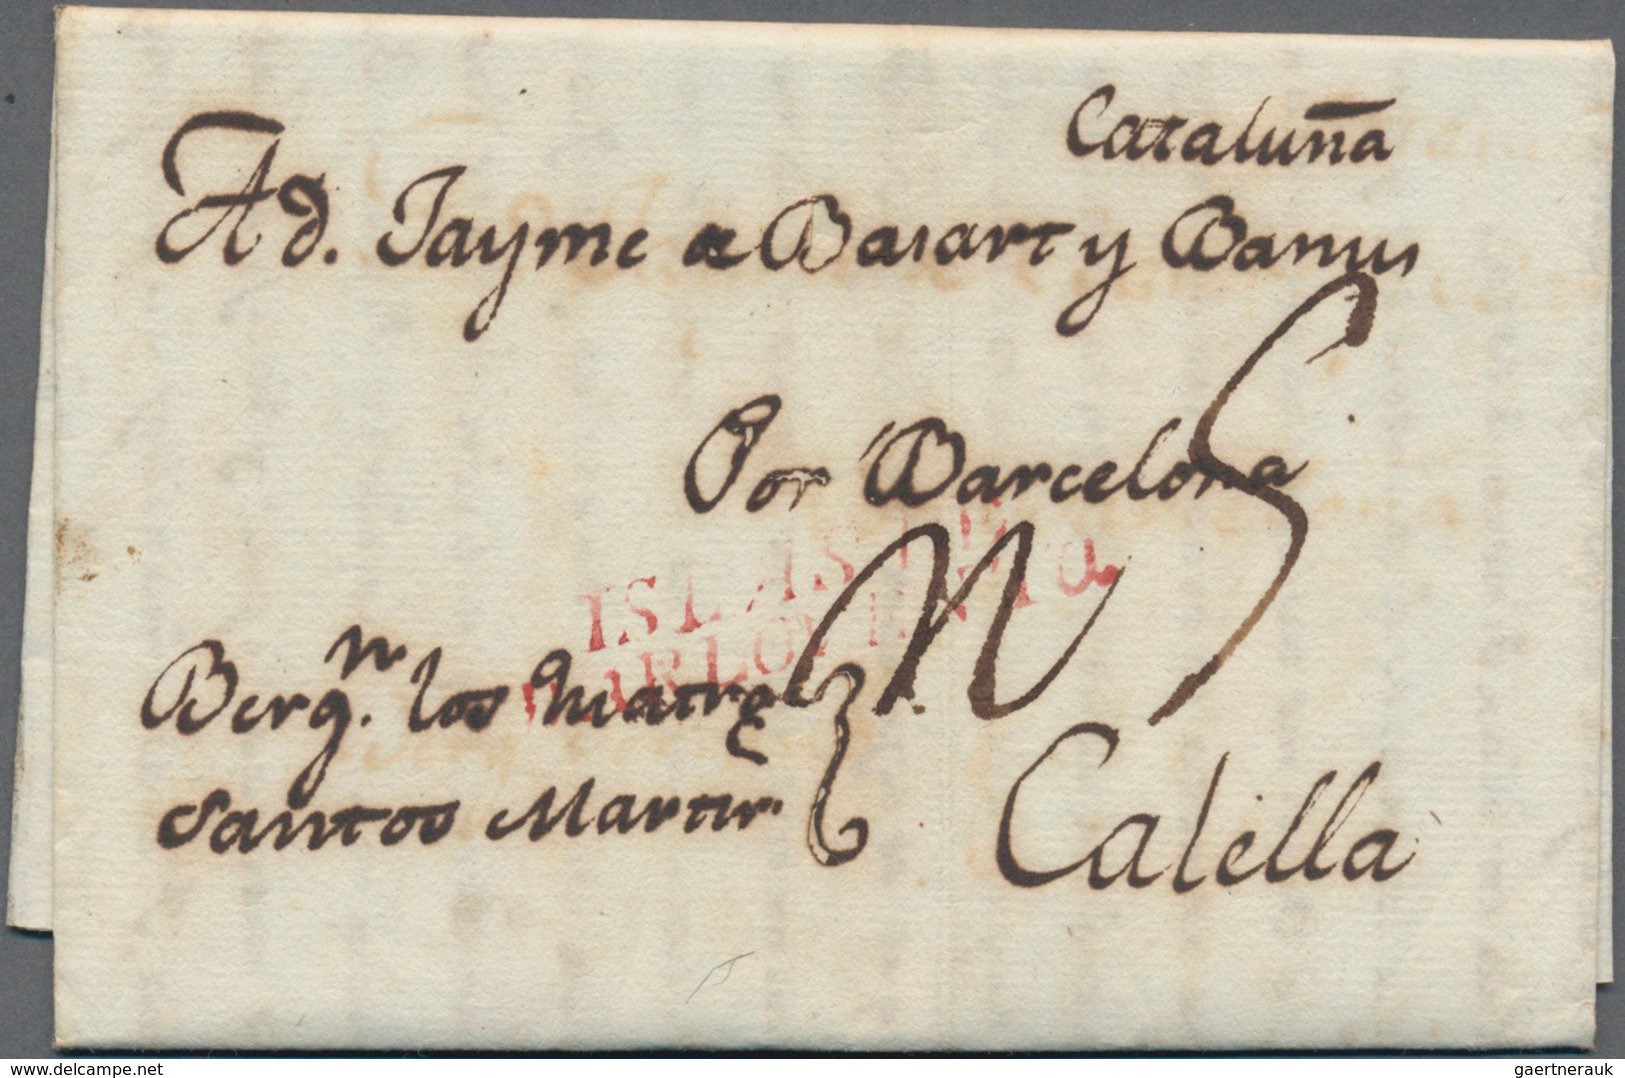 Cataluña
A d. Jayme de Basart y Banus
Por Barcelona
ISLAS DE
BARLOVENTO
Bergn. los
Santos Martir.
Calella
www.delcampe.net
gaertnerauk